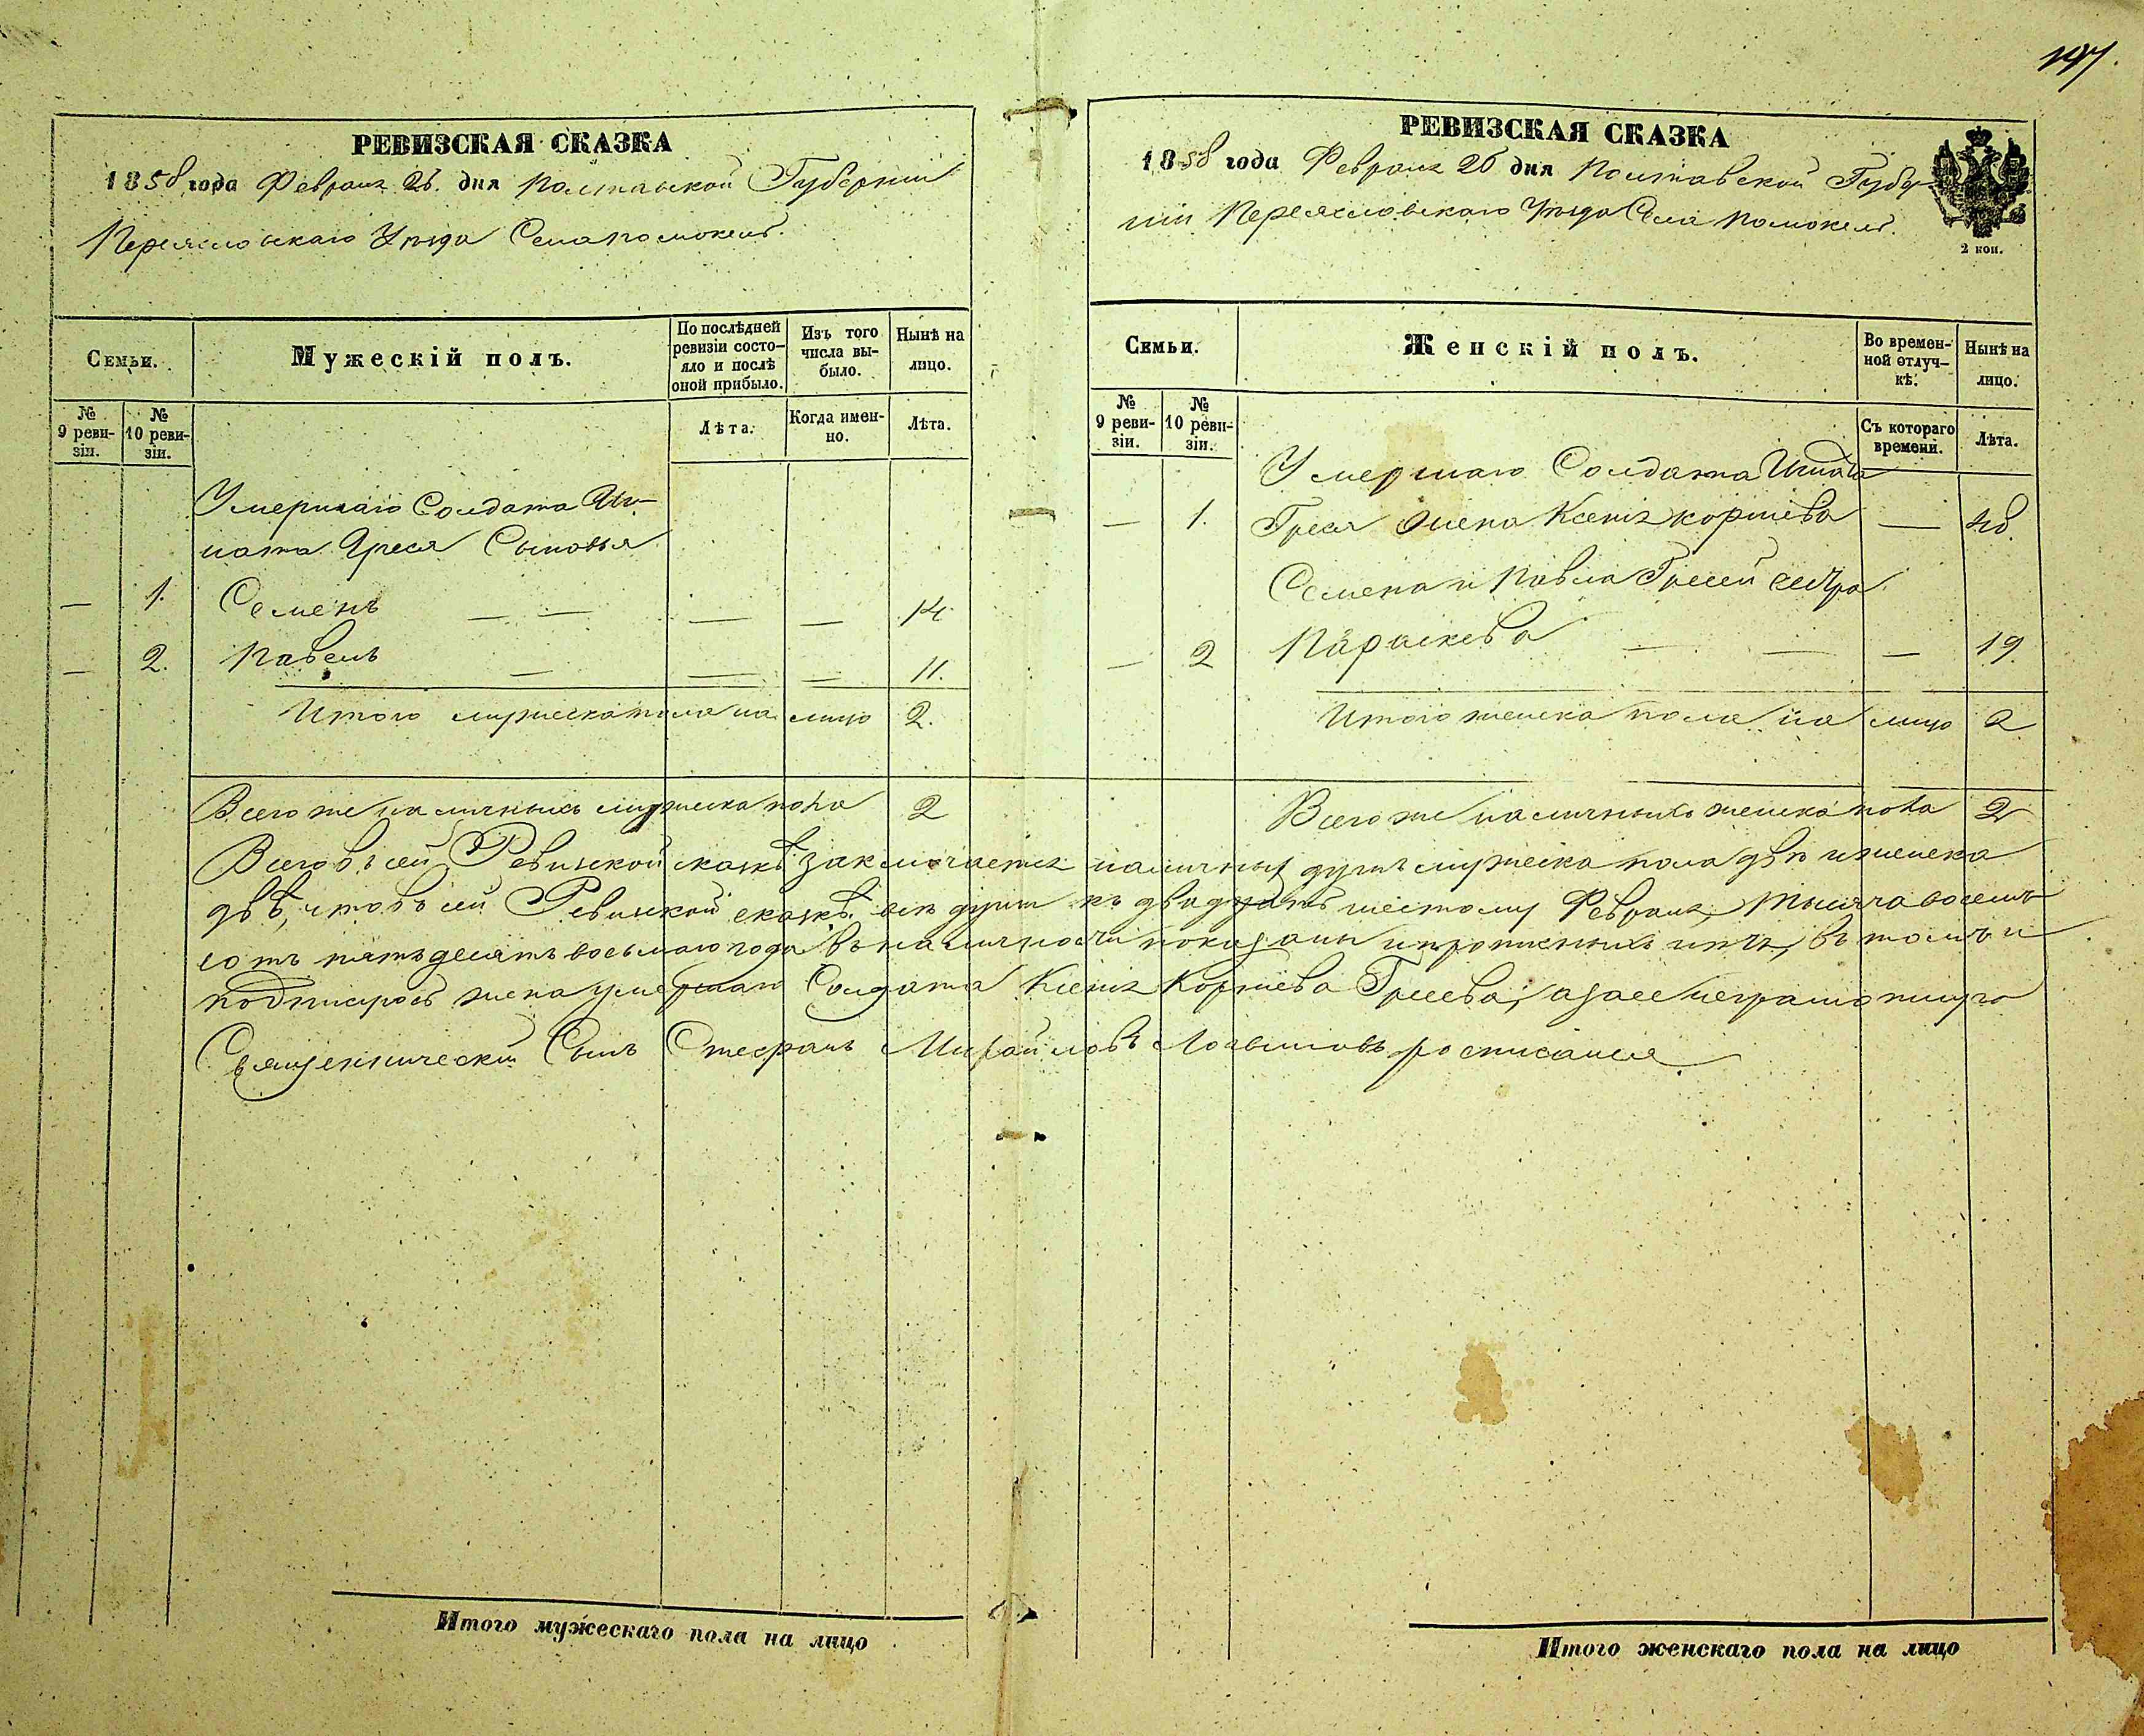 197.
РЕВИЗСКАЯ СКАЗКА
1858 года Февраля 26. дня Полтавской Губерніи
Переясловскаго Уѣзда Села Помоклей.
Семьи.
Мужескій полъ.
По послѣдней ревизіи состояло и послѣ оной прибыло.
Изъ того числа выбыло.
Нынѣ на лицо.
№ 9 ревизіи.
№ 10 ревизіи.
Лѣта.
Когда именно.
Лѣта.
Умершаго Солдата Иг-
ната Греся Сыновья
— 1. Семенъ — — — — 14.
— 2. Павелъ — — — 11.
Итого мужеска пола на лицо 2.
Всего же наличныхъ мужеска пола 2
РЕВИЗСКАЯ СКАЗКА
1858 года Февраля 26 дня Полтавской Губер-
ніи Переясловскаго Уѣзда Села Помоклей.
2 коп.
Семьи.
Женскій полъ.
Во временной отлучкѣ.
Нынѣ на лицо.
№ 9 ревизіи.
№ 10 ревизіи.
Съ котораго времени.
Лѣта.
Умершаго Солдата Игната
— 1. Греся жена Ксенія Корніева — 48.
Семена и Павла Гресей сестра
— 2 Параскева — — — 19.
Итого женска пола на лицо 2
Всего же наличныхъ женска пола 2
Всего въ сей Ревизской сказкѣ заключается наличныхъ душъ мужеска пола двѣ и женска
двѣ, что въ сей Ревизской сказкѣ всѣ души къ двадцать шестому Февраля, тысяча восемь
сотъ пятьдесятъ восьмаго года въ наличности показаны и прописныхъ нѣтъ, въ томъ и
подписуюсь жена умершаго Солдата Ксенія Корніева Гресева, а за ее неграмотную
Священнический Сынъ Стефанъ Михайловъ росписался
Итого мужескаго пола на лицо
Итого женскаго пола на лицо